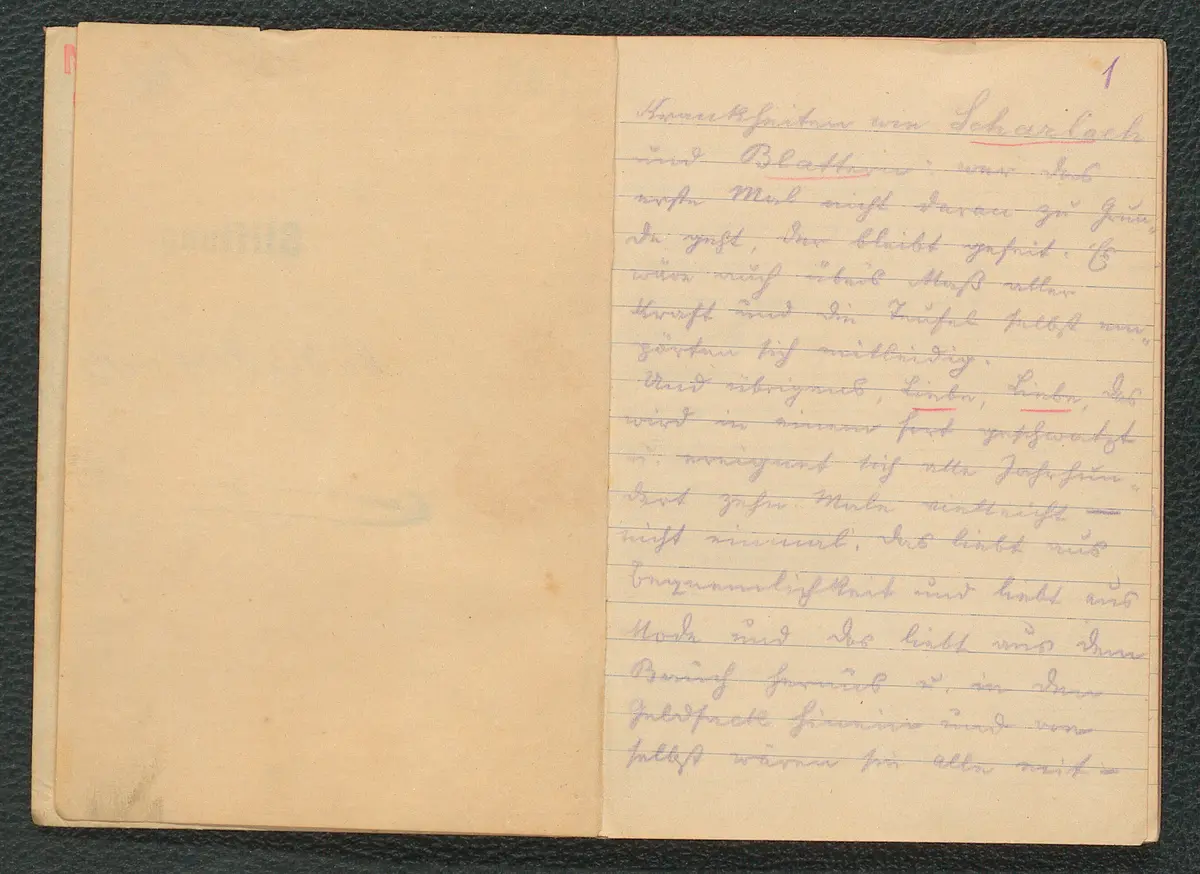 1
Krankheiten wie Scharlach
und Blattern: wer das
erste Mal nicht daran zu Grun„
de geht, der bleibt gefeit. Es
wäre auch über's Maß aller
Kraft und die Teufel selbst em„
pörten sich mitleidig.
Und übrigens, Liebe, Liebe, das
wird in einem fort geschwatzt
u. ereignet sich alle Jahrhun„
dert zehn Male vielleicht —
nicht einmal. Das liebt aus
Bequemlichkeit und liebt aus
Mode und das liebt aus dem
Bauch heraus u. in den
Geldsack hinein und von
selbst wären sie alle mit-